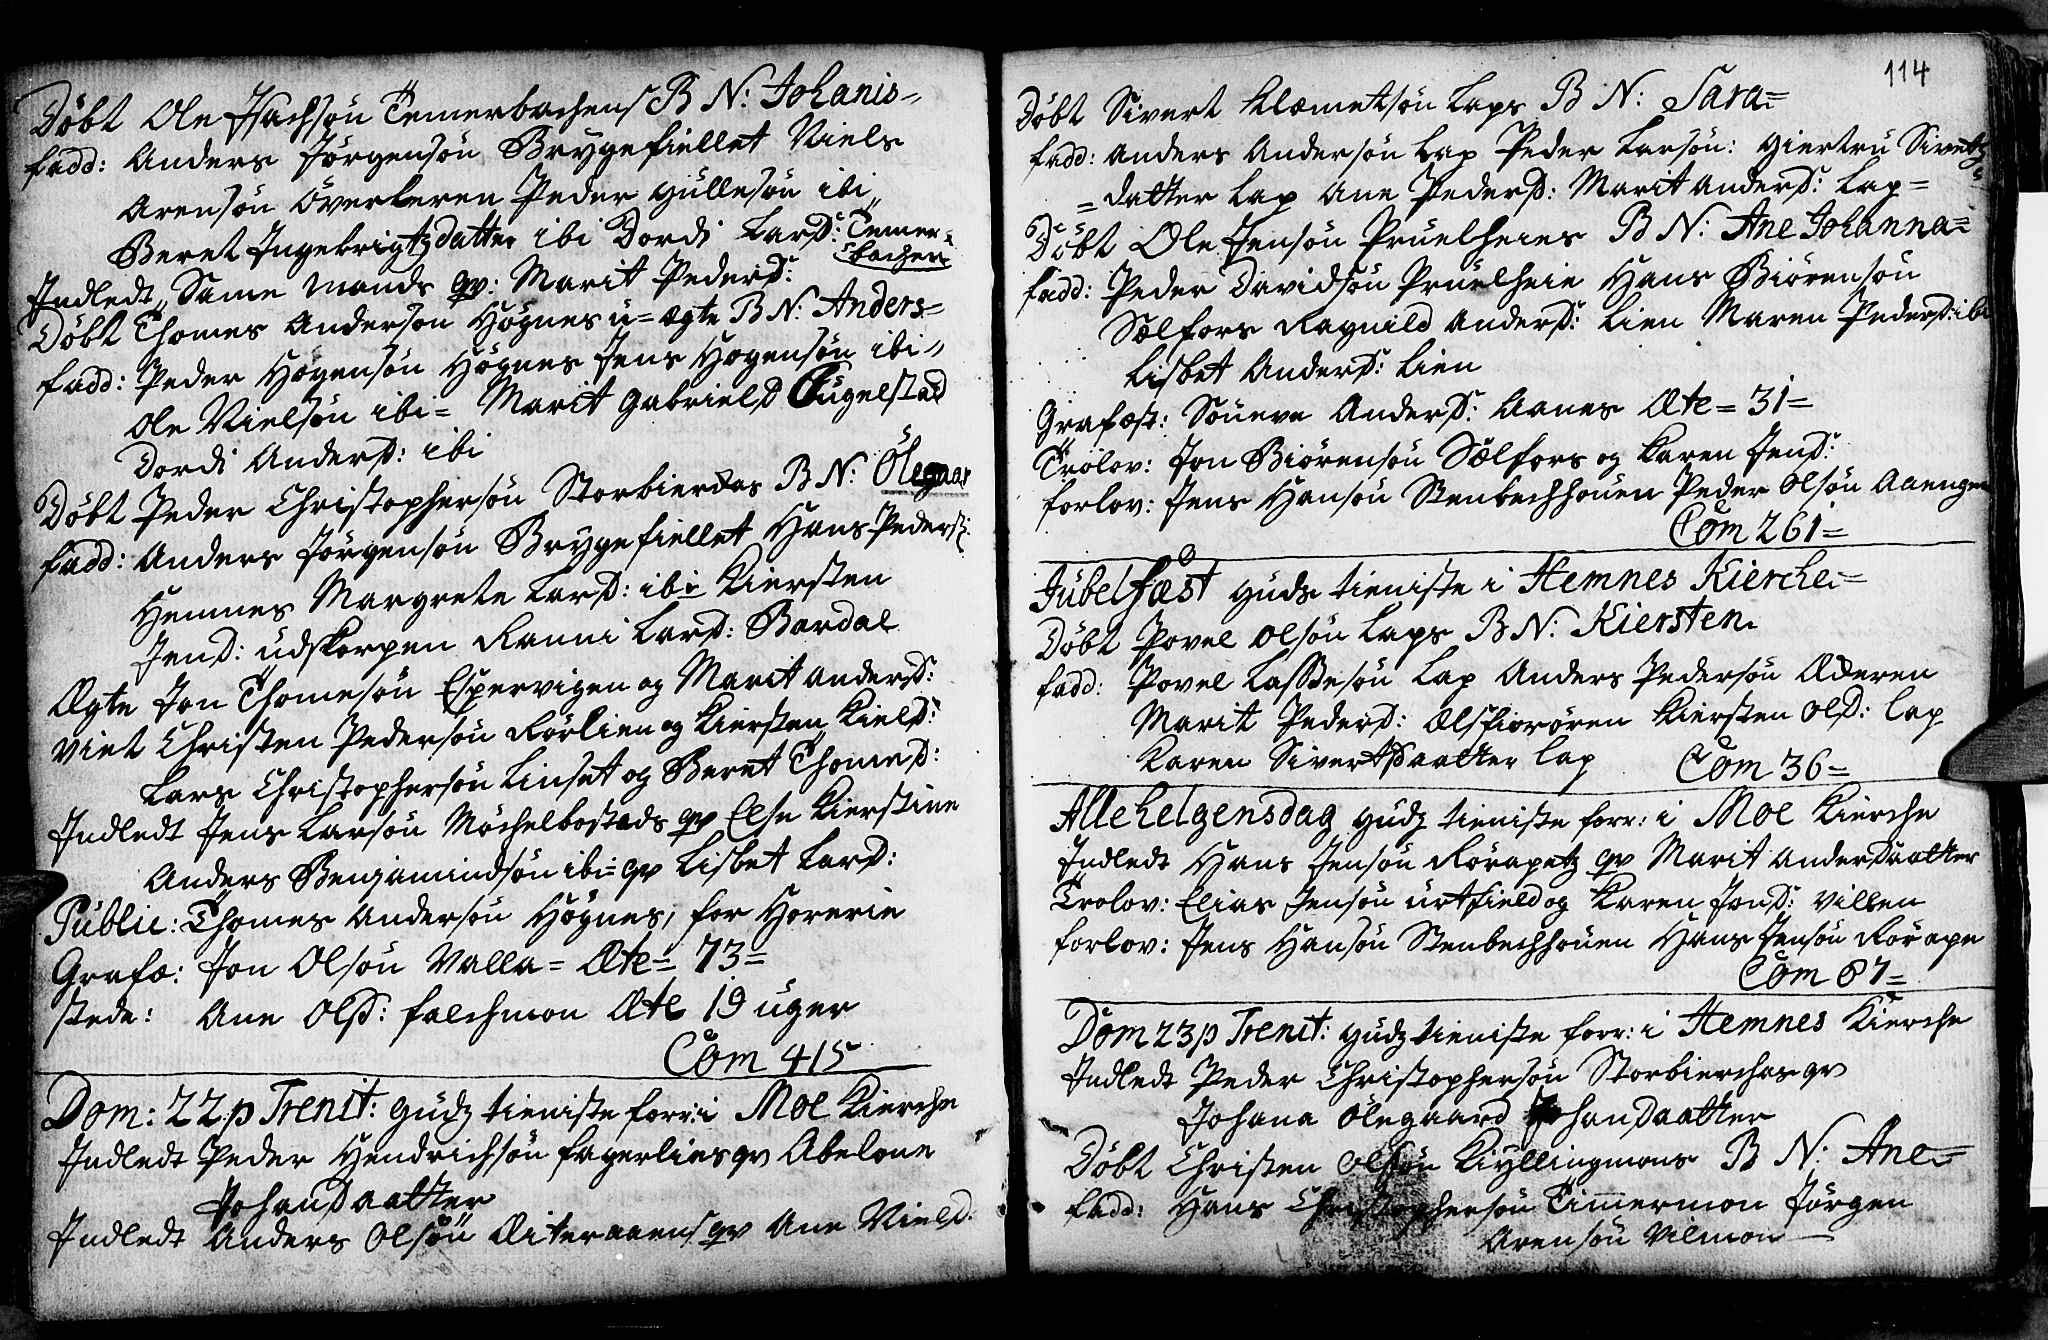 Döbt Ole Isachsön Temerbachens B N: Johanis=
fadd: Anders Jörgensön Brygefiellet Niels
Arensön Överleren Peder Gullesön ibi
Beret Ingebrigtzdatter ibi Dordi Larsd: Temer=
bachen
Indledt Same Mands qv: Marit Pedersd:
Döbt Thomes Andersön Högnes u=ægte B N: Anders=
fadd: Peder Hogensön Högnes Jens Hogensön ibi
Ole Nielsön ibi= Marit Gabrielsd Öugelstad
Dordi Andersd: ibi
Döbt Peder Christophersön Storbierchas B N: Ölegaar
fadd: Anders Jörgensön Brygefiellet Hans Peders:
Hemnes Margrete Larsd: ibi Kiersten
Jensd: udskorpen Ranni Larsd: Bardal
Ægte Jon Thomesön Espervigen og Marit Andersd:
Viet Christen Pedersön Rörlien og Kiersten Kields:
Lars Christophersön Linset og Beret Thomesd:
Indledt Jens Larsön Möchelbostads qv Else Kierstine
Anders Benjamindsön ibi= qv Lisbet Larsd:
Public: Thomes Andersön Högnes, for Horerie
Grafæ: Jon Olsön Valla= Æte= 73=
stede: Ane Olsd: falchmon Æte 19 uger
Com 415
Dom: 22 p Trenit: Gudz tieniste forr: i Moe Kierche
Indledt Peder Hendrichsön fagerlies qv Abelone
Johansdaatter
Indledt Anders Olsön Æiteraaens qv Ane Nielsd.
114
Döbt Sivert Klæmetsön Laps B N: Sara=
fadd: Anders Andersön Lap Peder Larsön: Giertru Siverts
=datter Lap Ane Pedersd: Marit Andersd: Lap=
Döbt Ole Jensön Pruelheies B N: Ane Johanna=
fadd: Peder Davidsön Pruelheie Hans Biörensön
Sælfors Ragnild Andersd: Lien Maren Pedersd: ibi
Lisbet Andersd: Lien
Grafæst: Söneva Andersd: Aanes Æte= 31=
Trolov: Jon Biörensön Sælfors og Karen Jensd:
forlov: Jens Hansön Stenbechhouen Peder Olsön Aaengen
Com 261=
Jubelfæst Guds tieniste i Hemnes Kierche=
Döbt Povel Olsön Laps B N: Kiersten
fadd: Povel Lassesön Lap Anders Pedersön Æderen
Marit Pedersd: Ælsfiorören Kiersten Olsd: Lap
Karen Sivertsdaatter Lap Com 36=
Allehelgensdag Gudz tieniste forr: i Moe Kierche
Indledt Hans Jensön Rörapetz qv Marit Andersdaatter
Trolov: Elias Jensön Urtfield og Karen Jonsd: Villen
forlov: Jens Hansön Stenbechhouen Hans Jensön Rörape
Com 87=
Dom 23 p Trenit: Gudz tieniste forr: i Hemnes Kierche
Indledt Peder Christophersön Storbierchas qv
Johana Ölegaard Johansdaatter
Döbt Christen Olsön Kiyllingmons B N: Ane=
fadd: Hans Christophersön Timermon Jörgen
Arensön Vilmon